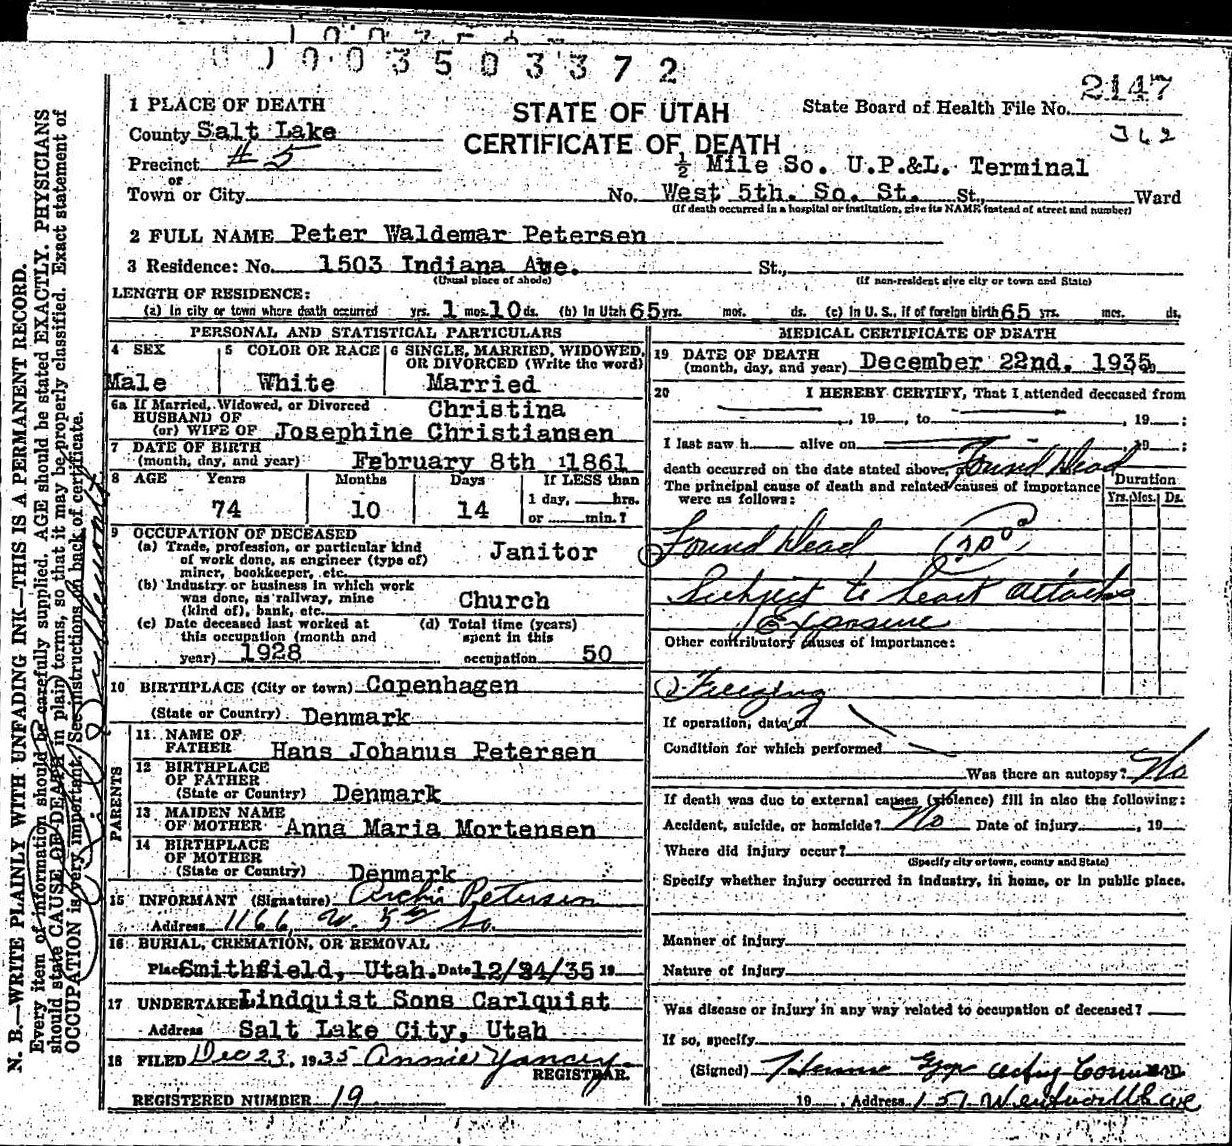 0 1 0 0 3 5 0 3 3 7 2
2147
362
STATE OF UTAH
CERTIFICATE OF DEATH
State Board of Health File No.
1 PLACE OF DEATH
County Salt Lake
Precinct #5
or
Town or City
½ Mile So. U.P.&L. Terminal
No. West 5th. So. St. St., Ward
(If death occurred in a hospital or institution, give its NAME instead of street and number)
2 FULL NAME Peter Waldemar Petersen
3 Residence: No. 1503 Indiana Ave. St.,
(Usual place of abode) (If non-resident give city or town and State)
LENGTH OF RESIDENCE:
(a) In city or town where death occurred yrs. 1 mos. 10 ds. (b) In Utah 65 yrs. mos. ds. (c) In U. S., if of foreign birth 65 yrs. mos. ds.
PERSONAL AND STATISTICAL PARTICULARS
4 SEX
Male
5 COLOR OR RACE
White
6 SINGLE, MARRIED, WIDOWED, OR DIVORCED (Write the word)
Married
6a If Married, Widowed, or Divorced
HUSBAND OF Christina
(or) WIFE OF Josephine Christiansen
7 DATE OF BIRTH
(month, day, and year) February 8th 1861
8 AGE Years Months Days If LESS than
1 day, hrs.
74 10 14 or min.?
9 OCCUPATION OF DECEASED
(a) Trade, profession, or particular kind of work done, as engineer (type of) miner, bookkeeper, etc. Janitor
(b) Industry or business in which work was done, as railway, mine (kind of), bank, etc. Church
(c) Date deceased last worked at this occupation (month and year) 1928
(d) Total time (years) spent in this occupation 50
10 BIRTHPLACE (City or town) Copenhagen
(State or Country) Denmark
PARENTS
11 NAME OF FATHER Hans Johanus Petersen
12 BIRTHPLACE OF FATHER
(State or Country) Denmark
13 MAIDEN NAME OF MOTHER Anna Maria Mortensen
14 BIRTHPLACE OF MOTHER
(State or Country) Denmark
15 INFORMANT (Signature) Archie Petersen
Address 1166 W. 5th So.
16 BURIAL, CREMATION, OR REMOVAL
Place Smithfield, Utah. Date 12/24/35 19
17 UNDERTAKE Lindquist Sons Carlquist
Address Salt Lake City, Utah
18 FILED Dec 23, 1935 Annie Yancey
REGISTRAR.
REGISTERED NUMBER 19
MEDICAL CERTIFICATE OF DEATH
19 DATE OF DEATH
(month, day, and year) December 22nd. 1935
20 I HEREBY CERTIFY, That I attended deceased from
, 19 , to , 19 :
I last saw h alive on 19 :
death occurred on the date stated above, Found Dead
The principal cause of death and related causes of importance were as follows:
Duration
Yrs. Mos. Ds.
Found Dead
Subject to heart attacks
Exposure
Other contributory causes of importance:
Freezing
If operation, date of
Condition for which performed
Was there an autopsy? No
If death was due to external causes (violence) fill in also the following:
Accident, suicide, or homicide? No Date of injury , 19
Where did injury occur?
(Specify city or town, county and State)
Specify whether injury occurred in industry, in home, or in public place.
Manner of injury
Nature of injury
Was disease or injury in any way related to occupation of deceased?
If so, specify
(Signed)
19 Address 157 Wentworth Ave
N. B.—WRITE PLAINLY WITH UNFADING INK—THIS IS A PERMANENT RECORD.
Every item of information should be carefully supplied. AGE should be stated EXACTLY. PHYSICIANS
should state CAUSE OF DEATH in plain terms, so that it may be properly classified. Exact statement of
OCCUPATION is very important. See instructions on back of certificate.